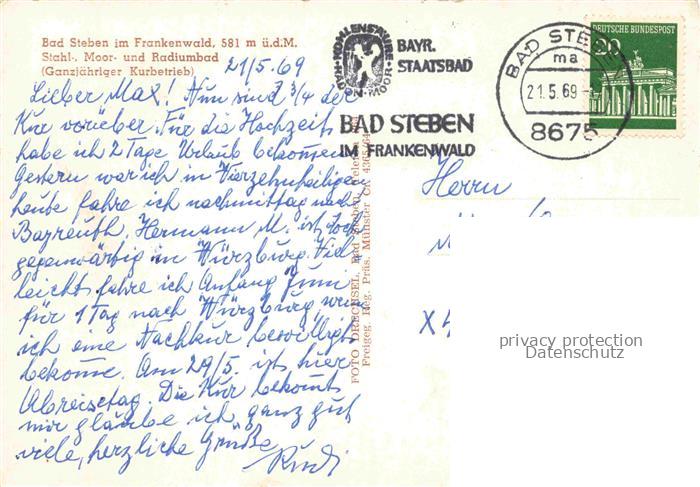 Bad Steben im Frankenwald, 581 m ü.d.M.
Stahl-, Moor- und Radiumbad
(Ganzjähriger Kurbetrieb)
21/5.69
Lieber Max! Nun sind 3/4 der
Kur vorüber. Für die Hochzeit
habe ich 2 Tage Urlaub bekommen
Gestern war ich in Vierzehnheiligen
heute fahre ich nachmittag nach
Bayreuth. Hermann M. ist
gegenwärtig in Würzburg. Viel
leicht fahre ich Anfang Juni
für 1 Tag nach Würzburg, wenn
ich eine Nachkur bewilligt
bekomme. Am 29/5. ist hier
Abreisetag. Die Kur bekommt
mir glaube ich ganz gut
viele, herzliche Grüße
Rudi
FOTO DRECHSEL, Bad Steben, Telefon
Freigeg. Reg. Präs. Münster
KOHLENSÄURE
RADON-MOOR
BAYR.
STAATSBAD
BAD STEBEN
IM FRANKENWALD
BAD STEBEN
ma
21.5.69
8675
DEUTSCHE BUNDESPOST
20
Herrn
privacy protection
Datenschutz